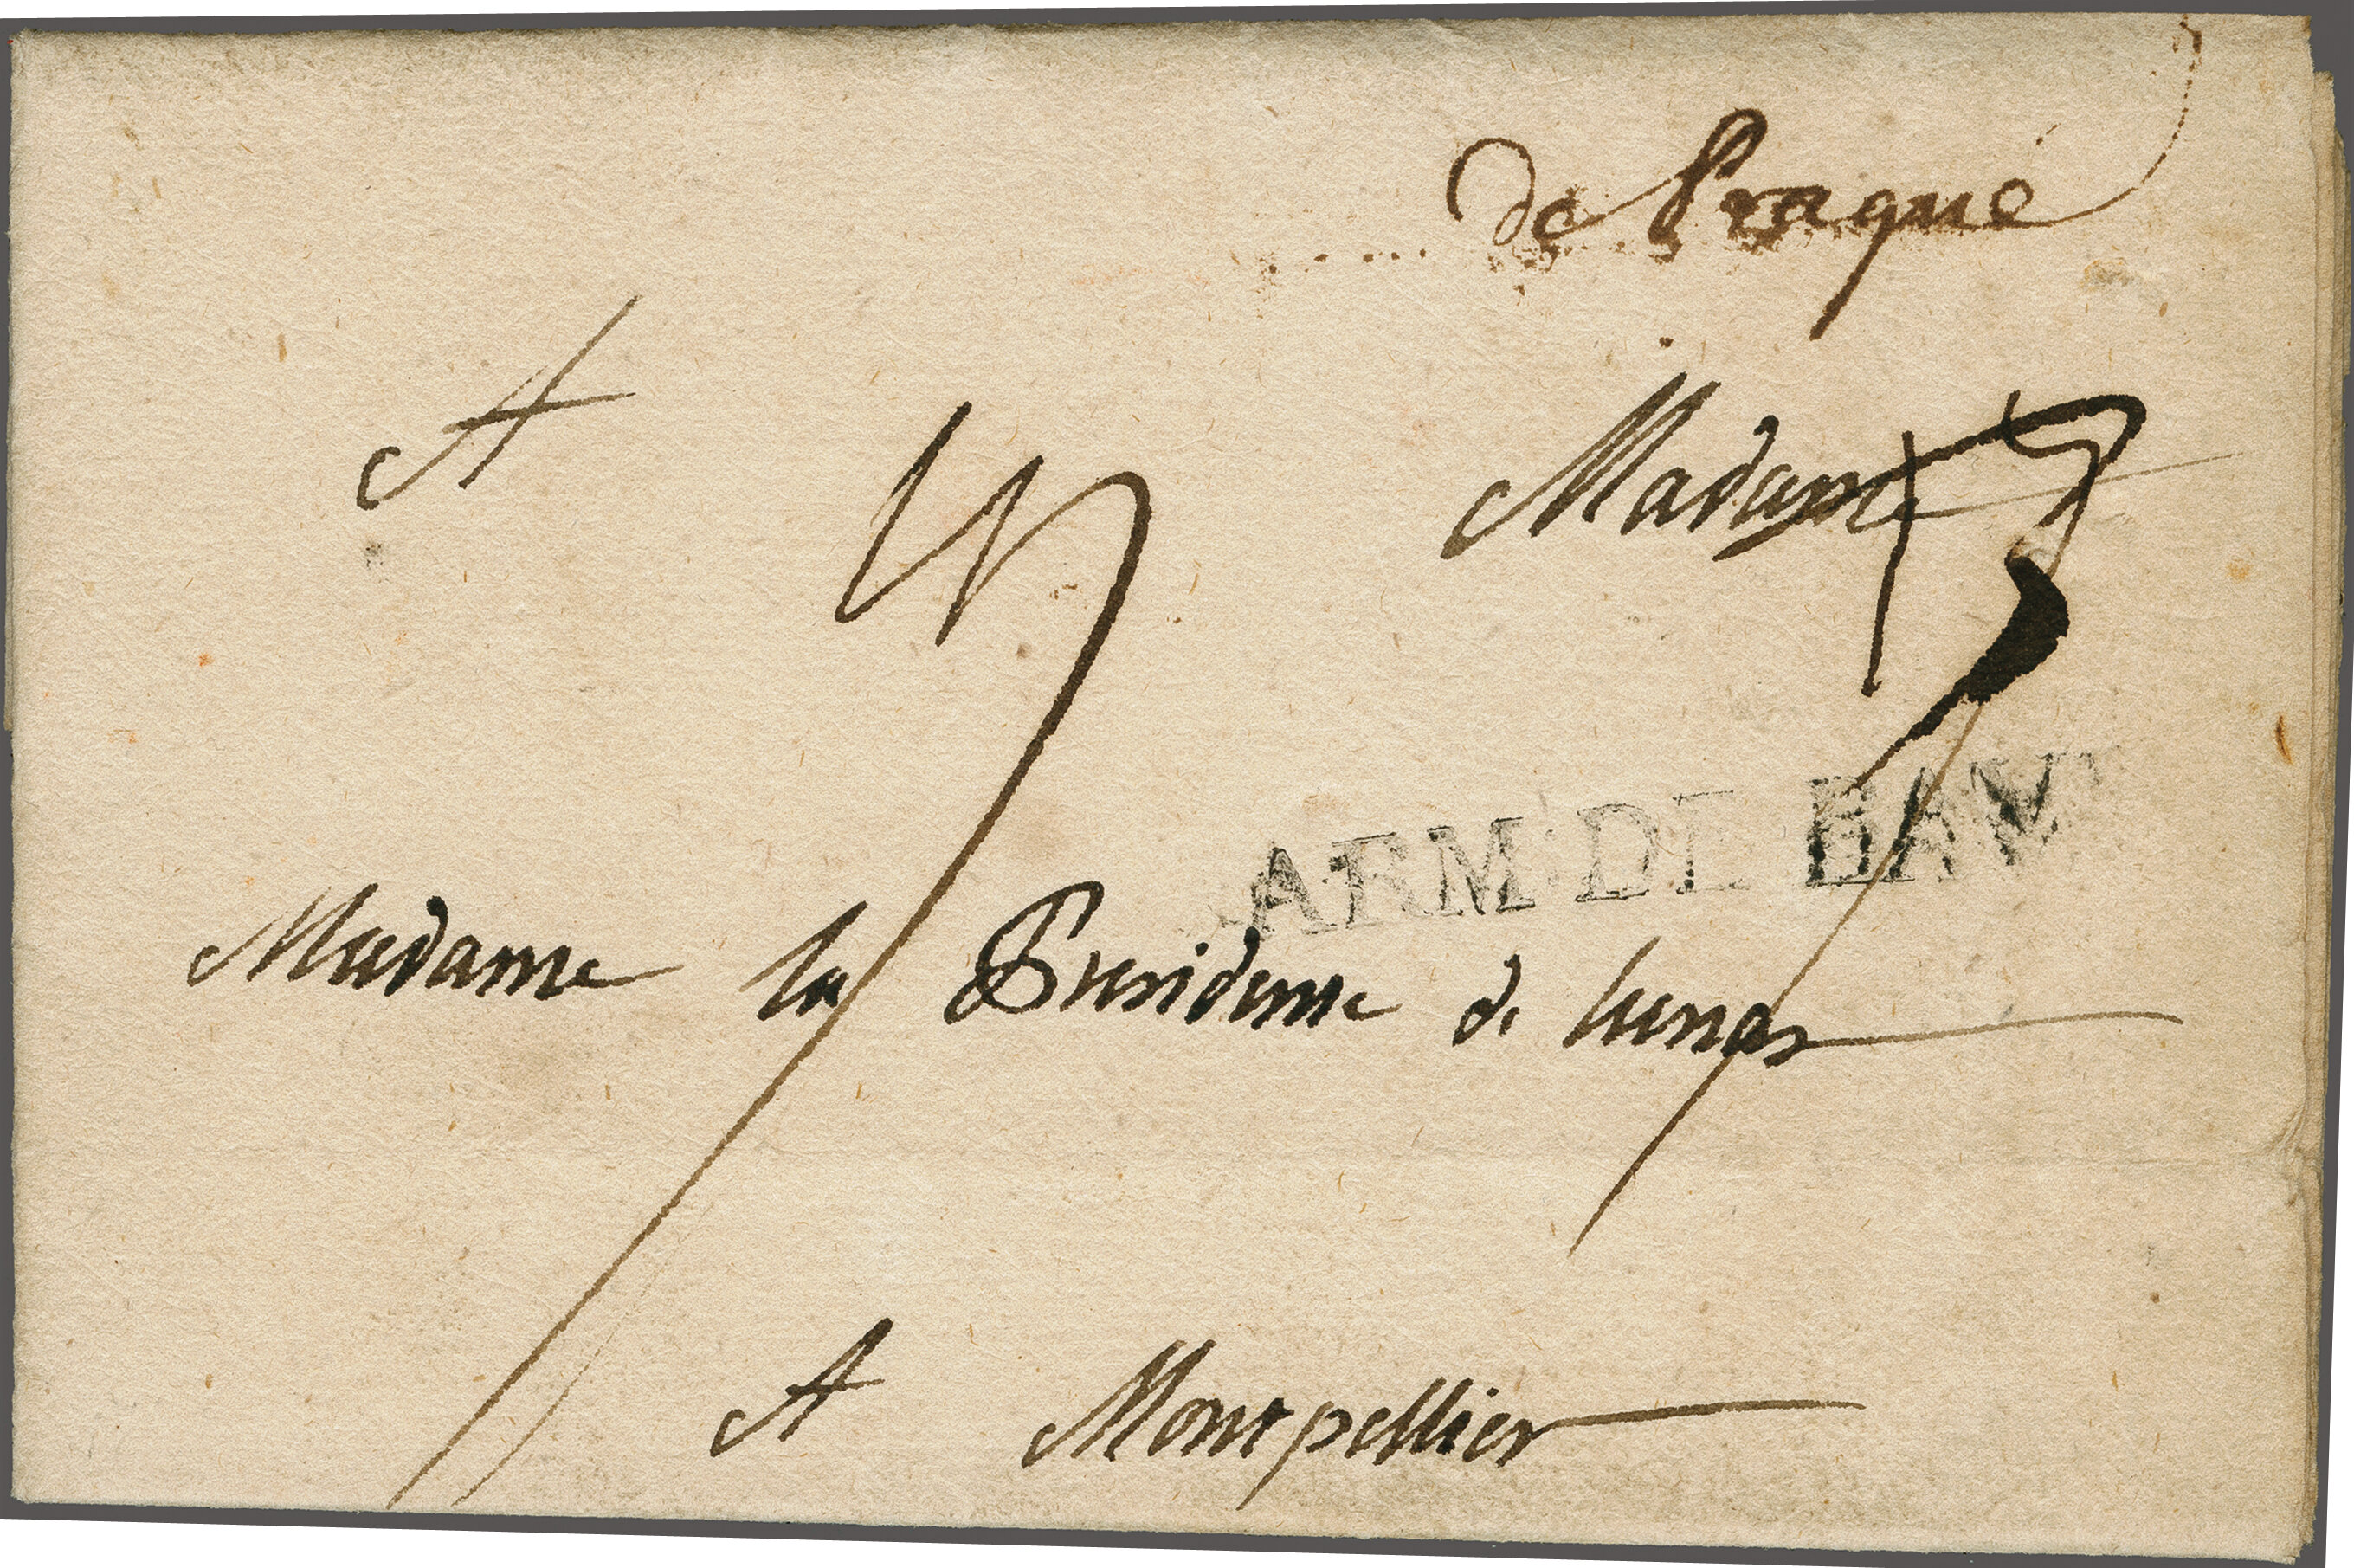 de Prague
A Madame
ARM·DE·BAV
Madame la Presidente de lunas
A Montpellier